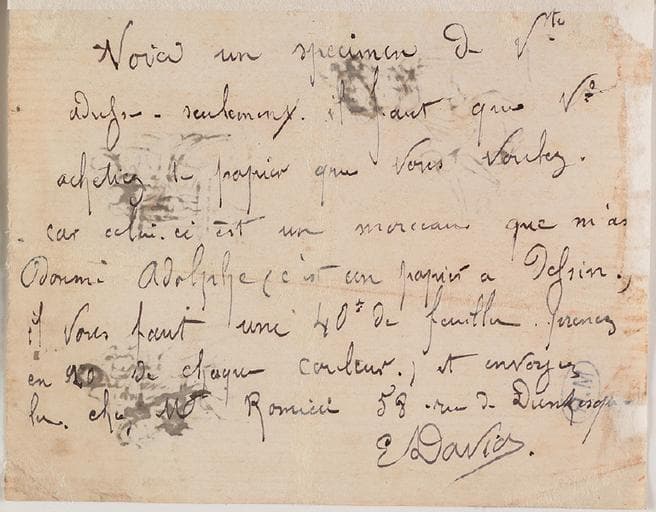 Voici un specimen de Vtre
adresse. seulement. il faut que Vs
achetiez le papier que vous voulez.
car celui-ci est un morceau que m'as
donné Adolphe (c'est un papier a Dessin.)
il vous faut une 40e de feuilles. prenez
en 20 de chaque couleur., et envoyez
les. chez Mr 58 rue de Dunkerque
E. David.